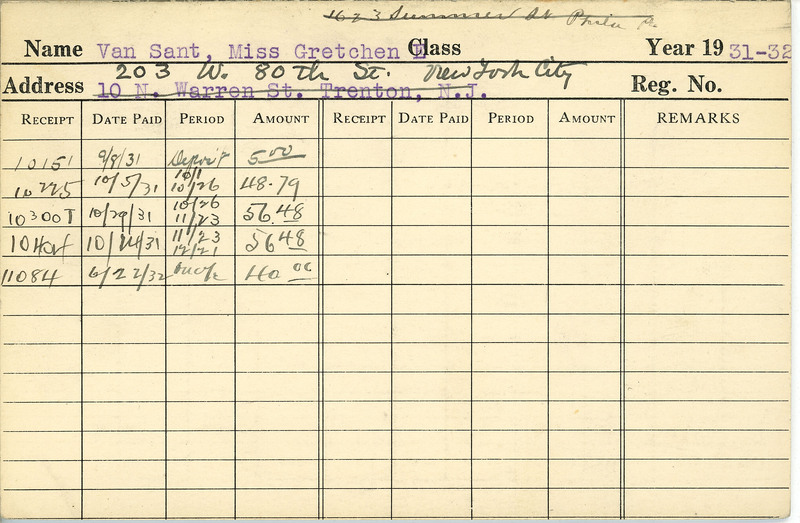 1623 Summer St Phila Pa.
Name Van Sant, Miss Gretchen E Class Year 19 31-32
203 W. 80th St. New York City
Address 10 N. Warren St. Trenton, N.J. Reg. No.
RECEIPT DATE PAID PERIOD AMOUNT RECEIPT DATE PAID PERIOD AMOUNT REMARKS
10151 9/9/31 Deposit 5.00
10225 10/5/31 10/1 10/26 48.79
10300T 10/29/31 10/26 11/23 56.48
11/23 12/21 56.48
11084 6/22/32 40.00